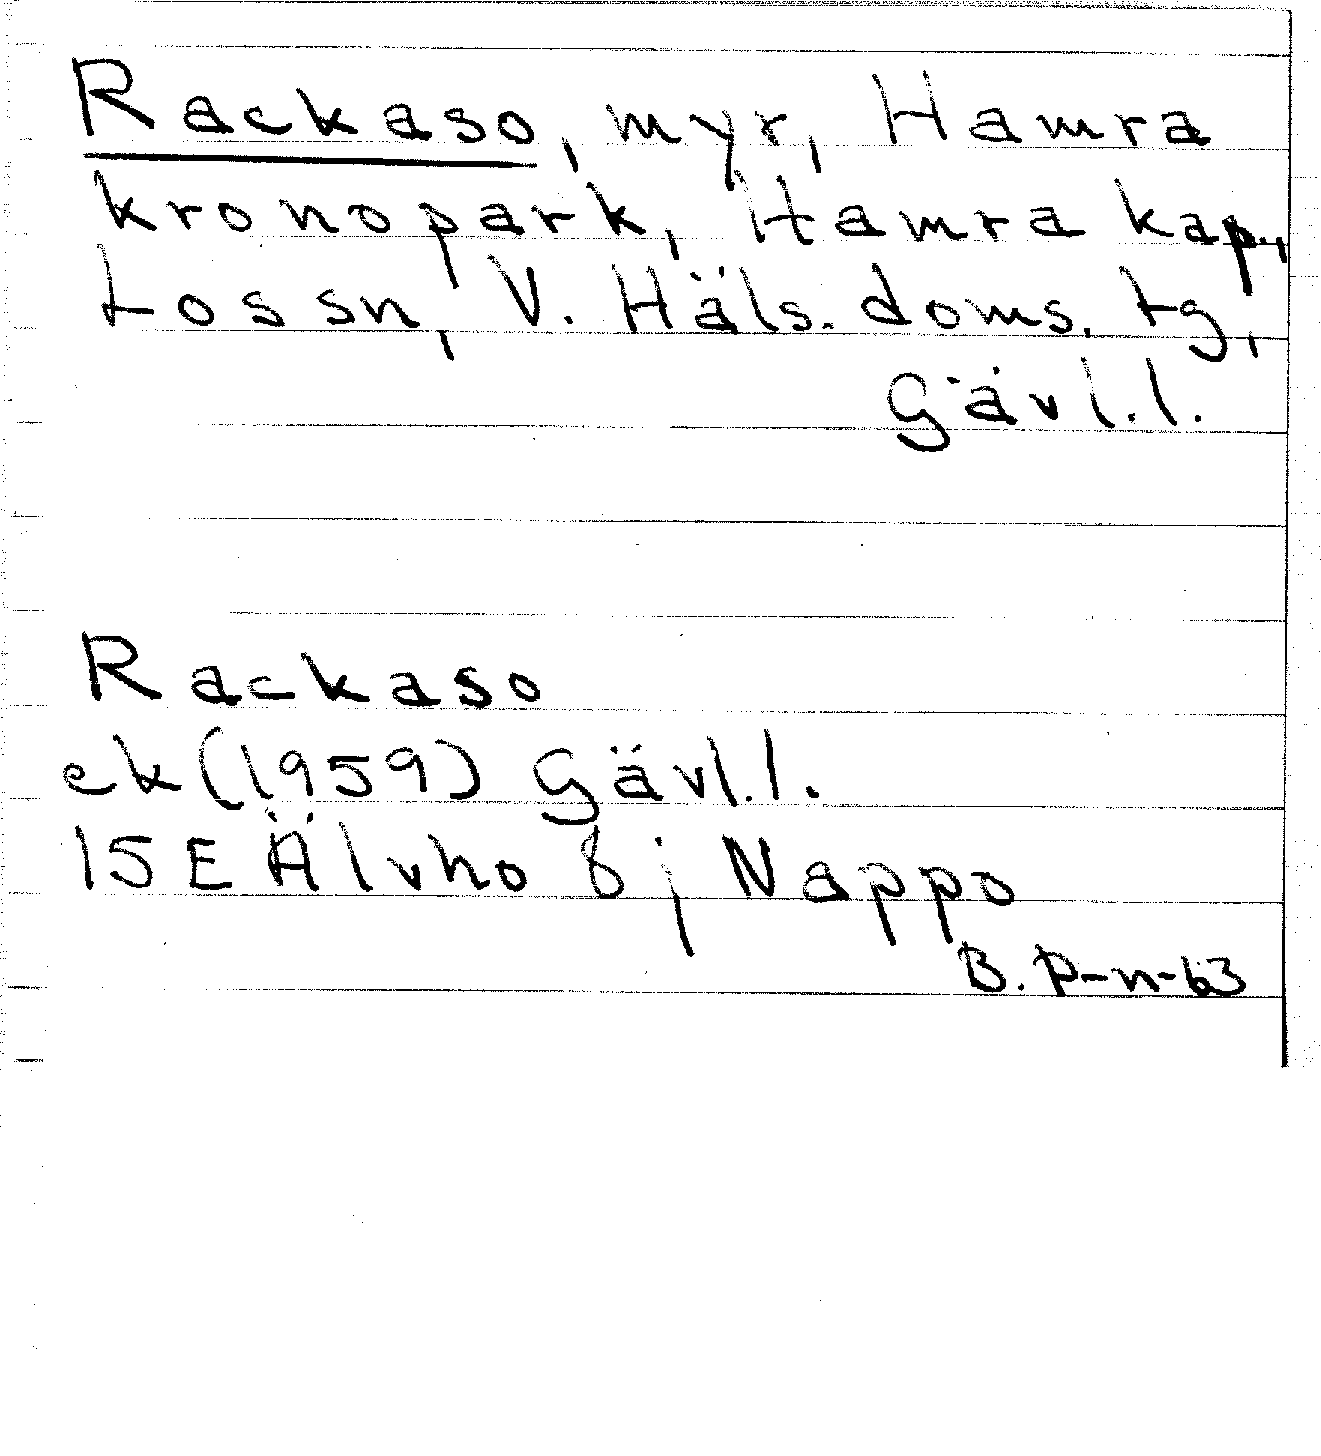 Rackaso, myr, Hamra
kronopark, Hamra kap.,
Lossn, V. Häls. doms. tg,
Gävl.l.
Rackaso
ek (1959) Gävl.l.
15E Älvho 8j Nappo
B. P-n-63